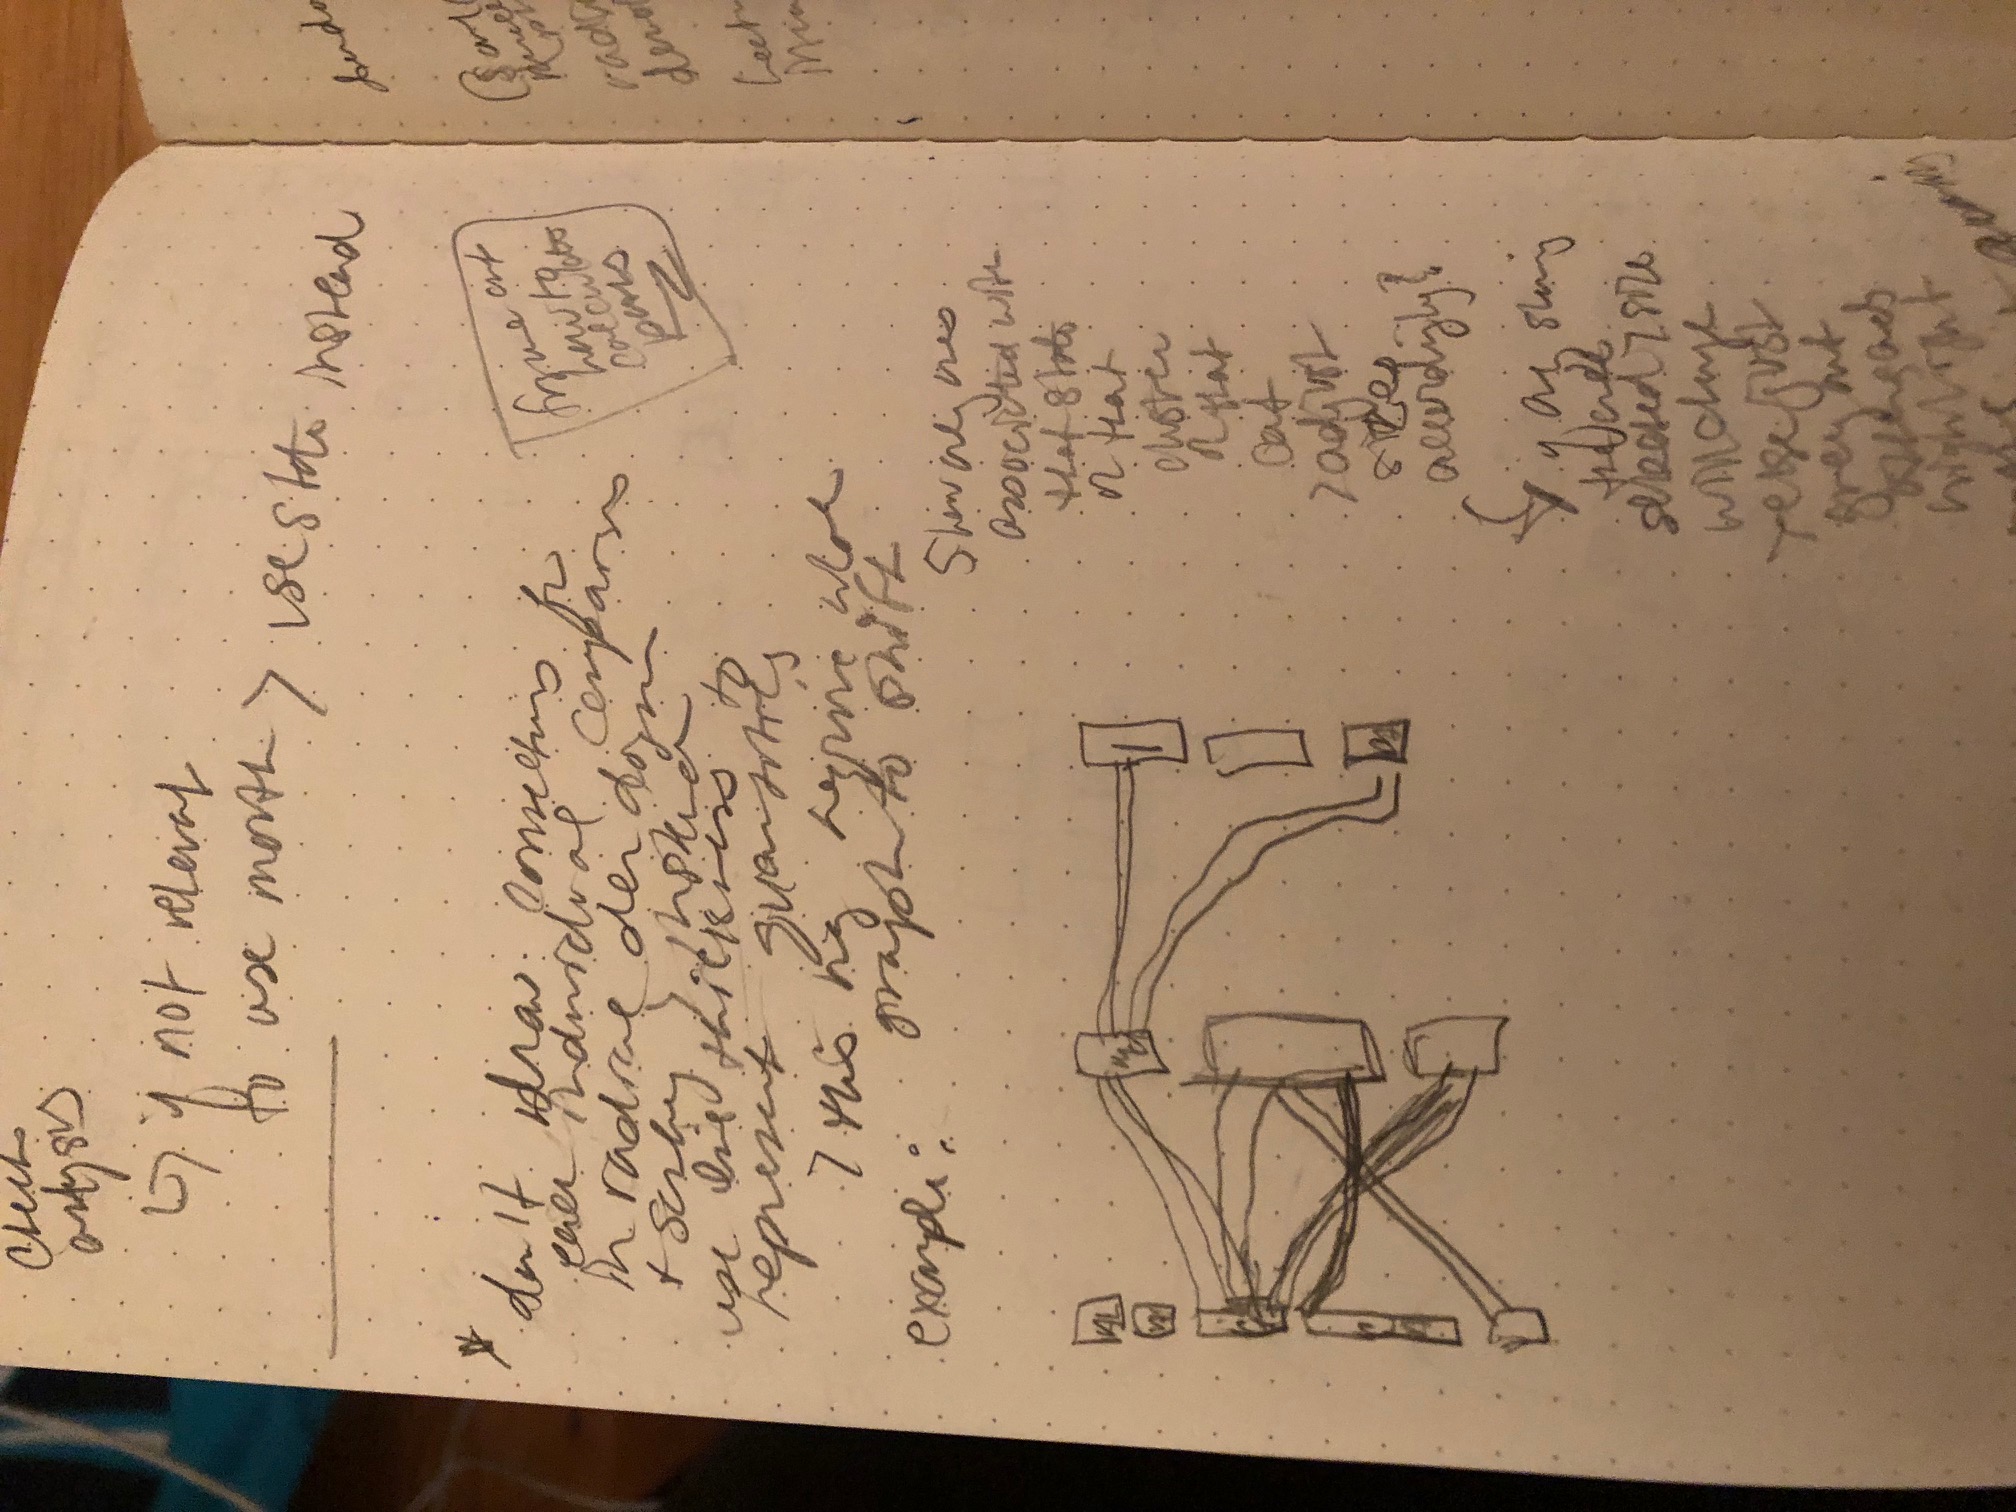 Check
analysis
↳ if not relevant
to use month > use state instead
* don't draw connections for
each individual comparison
in radial dendogram
+ sankey > instead
use line thickness to
represent quantities
> this may require whole
graph to shift
example:
figure out
how to
calculate
paths
Show only ones
associated with
that state
or that
cluster
or that
cat
> adjust
sizes
accordingly?
if only showing
the ones
selected > size
will change
> else just
grey out
others and
highlight
radi